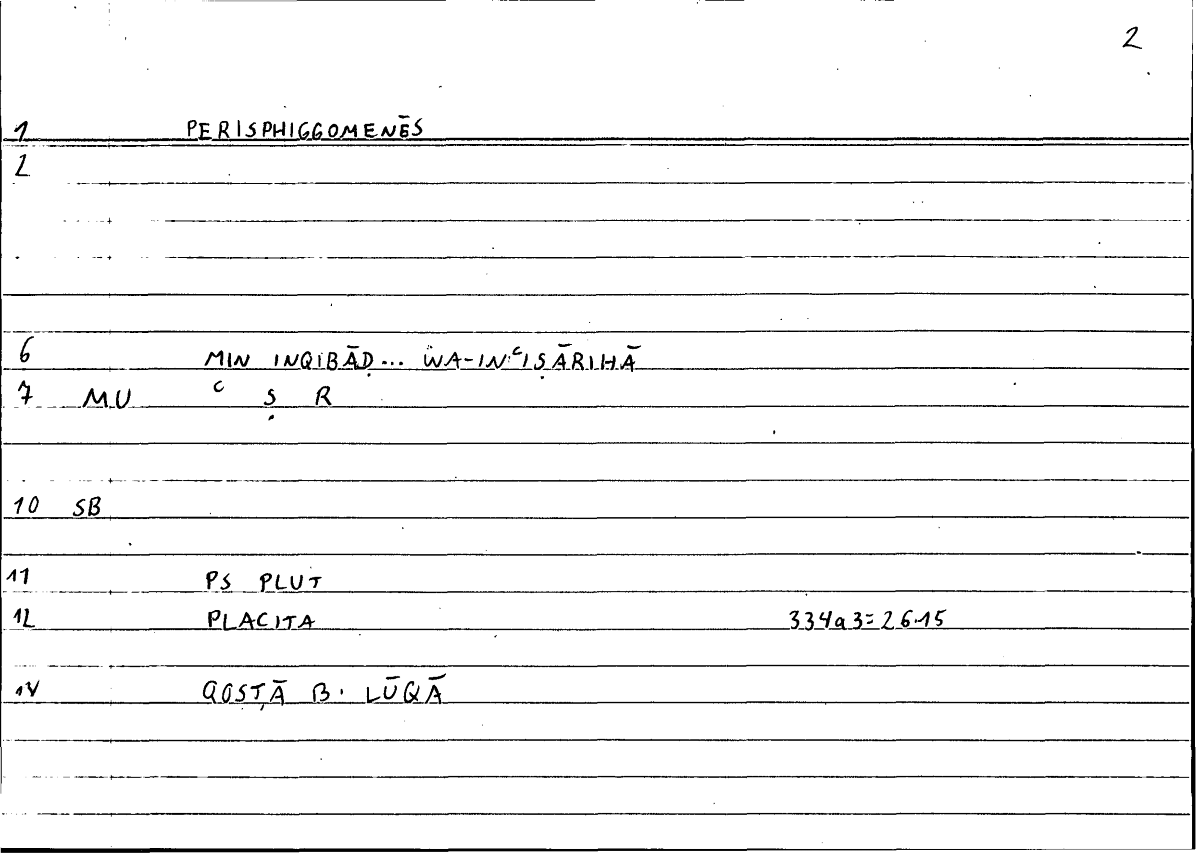 2
1 PERISPHIGGOMENĒS
2
6 MIN INQIBĀḌ... WA-INʿIṢĀRIHĀ
7 MU ʿ Ṣ R
10 SB
11 PS PLUT
12 PLACITA 334a3=26.15
14 QOSṬĀ B. LŪQĀ